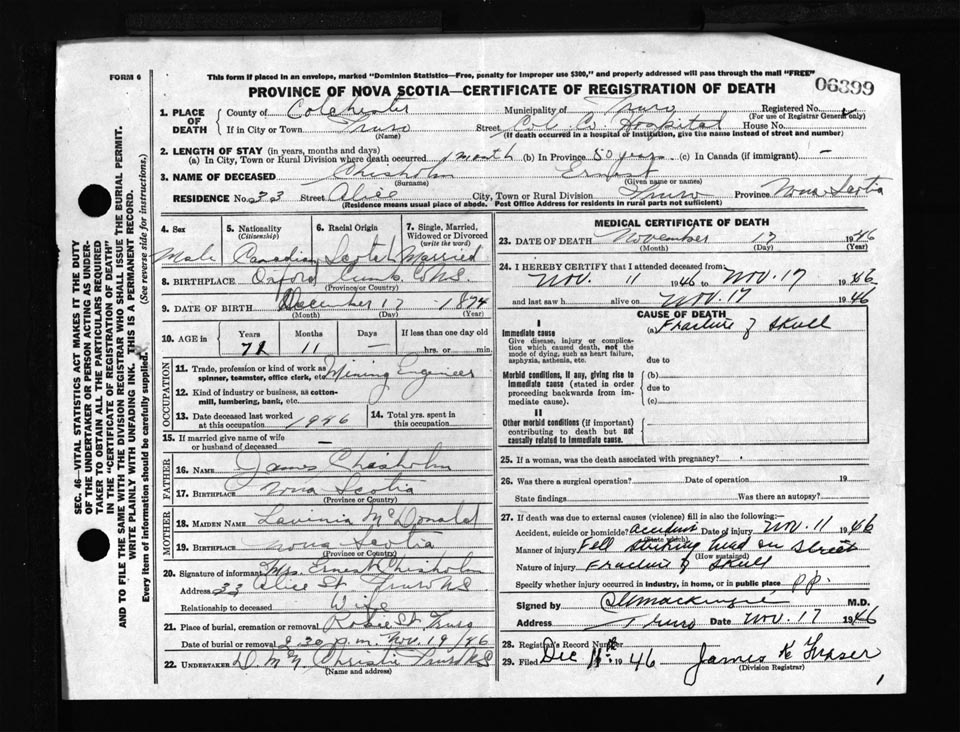 FORM 6
This form if placed in an envelope, marked "Dominion Statistics—Free, penalty for improper use $300," and properly addressed will pass through the mail "FREE"
06399
PROVINCE OF NOVA SCOTIA—CERTIFICATE OF REGISTRATION OF DEATH
SEC. 46—VITAL STATISTICS ACT MAKES IT THE DUTY
OF THE UNDERTAKER OR PERSON ACTING AS UNDER-
TAKER TO OBTAIN ALL THE PARTICULARS REQUIRED
IN THE "CERTIFICATE OF REGISTRATION OF DEATH"
AND TO FILE THE SAME WITH THE DIVISION REGISTRAR WHO SHALL ISSUE THE BURIAL PERMIT.
WRITE PLAINLY WITH UNFADING INK. THIS IS A PERMANENT RECORD.
Every item of information should be carefully supplied. (See reverse side for instructions.)
1. PLACE OF DEATH County of Colchester Municipality of Truro Registered No.
(For use of Registrar General only)
If in City or Town Truro Street Col. Co. Hospital House No.
(Name) (If death occurred in a hospital or institution, give the name instead of street and number)
2. LENGTH OF STAY (in years, months and days)
(a) In City, Town or Rural Division where death occurred 1 month (b) In Province 50 years (c) In Canada (if immigrant) —
3. NAME OF DECEASED Chisholm Ernest
(Surname) (Given name or names)
RESIDENCE No. 33 Street Alice City, Town or Rural Division Truro Province Nova Scotia
(Residence means usual place of abode. Post Office Address for residents in rural parts not sufficient)
4. Sex 5. Nationality (Citizenship) 6. Racial Origin 7. Single, Married, Widowed or Divorced (write the word)
Male Canadian Scotch Married
8. BIRTHPLACE Oxford Cumb. Co. N.S.
(Province or Country)
9. DATE OF BIRTH December 17 1874
(Month) (Day) (Year)
10. AGE in Years Months Days If less than one day old
71 11 — hrs. or min.
OCCUPATION
11. Trade, profession or kind of work as spinner, teamster, office clerk, etc. Mining Engineer
12. Kind of industry or business, as cotton-mill, lumbering, bank, etc.
13. Date deceased last worked at this occupation 1946 14. Total yrs. spent in this occupation
15. If married give name of wife or husband of deceased —
FATHER
16. NAME James Chisholm
17. BIRTHPLACE Nova Scotia
(Province or Country)
MOTHER
18. MAIDEN NAME Lavinia McDonald
19. BIRTHPLACE Nova Scotia
(Province or Country)
20. Signature of informant Mrs. Ernest Chisholm
Address 33 Alice St. Truro N.S
Relationship to deceased Wife
21. Place of burial, cremation or removal Robie St. Truro
Date of burial or removal 2.30 p.m. Nov. 19/46
22. UNDERTAKER Christie Truro N.S
(Name and address)
MEDICAL CERTIFICATE OF DEATH
23. DATE OF DEATH November 17 1946
(Month) (Day) (Year)
24. I HEREBY CERTIFY that I attended deceased from
Nov. 11 1946 to Nov. 17 1946
and last saw h alive on Nov. 17 1946
CAUSE OF DEATH
I
Immediate cause (a) Fracture of Skull
Give disease, injury or complication which caused death, not the mode of dying, such as heart failure, asphyxia, asthenia, etc.
due to
Morbid conditions, if any, giving rise to immediate cause (stated in order proceeding backwards from immediate cause). (b)
due to
(c)
II
Other morbid conditions (if important) contributing to death but not causally related to immediate cause.
25. If a woman, was the death associated with pregnancy?
26. Was there a surgical operation? Date of operation 19
State findings Was there an autopsy?
27. If death was due to external causes (violence) fill in also the following:
Accident, suicide or homicide? accident Date of injury Nov. 11 1946
(State which)
Manner of injury Fell striking head on street
(How sustained)
Nature of injury Fracture of Skull
Specify whether injury occurred in industry, in home, or in public place p p.
Signed by Mackenzie M.D.
Address Truro Date Nov. 17 1946
28. Registrar's Record Number
29. Filed Dec 1946 James K Fraser
(Division Registrar)
1